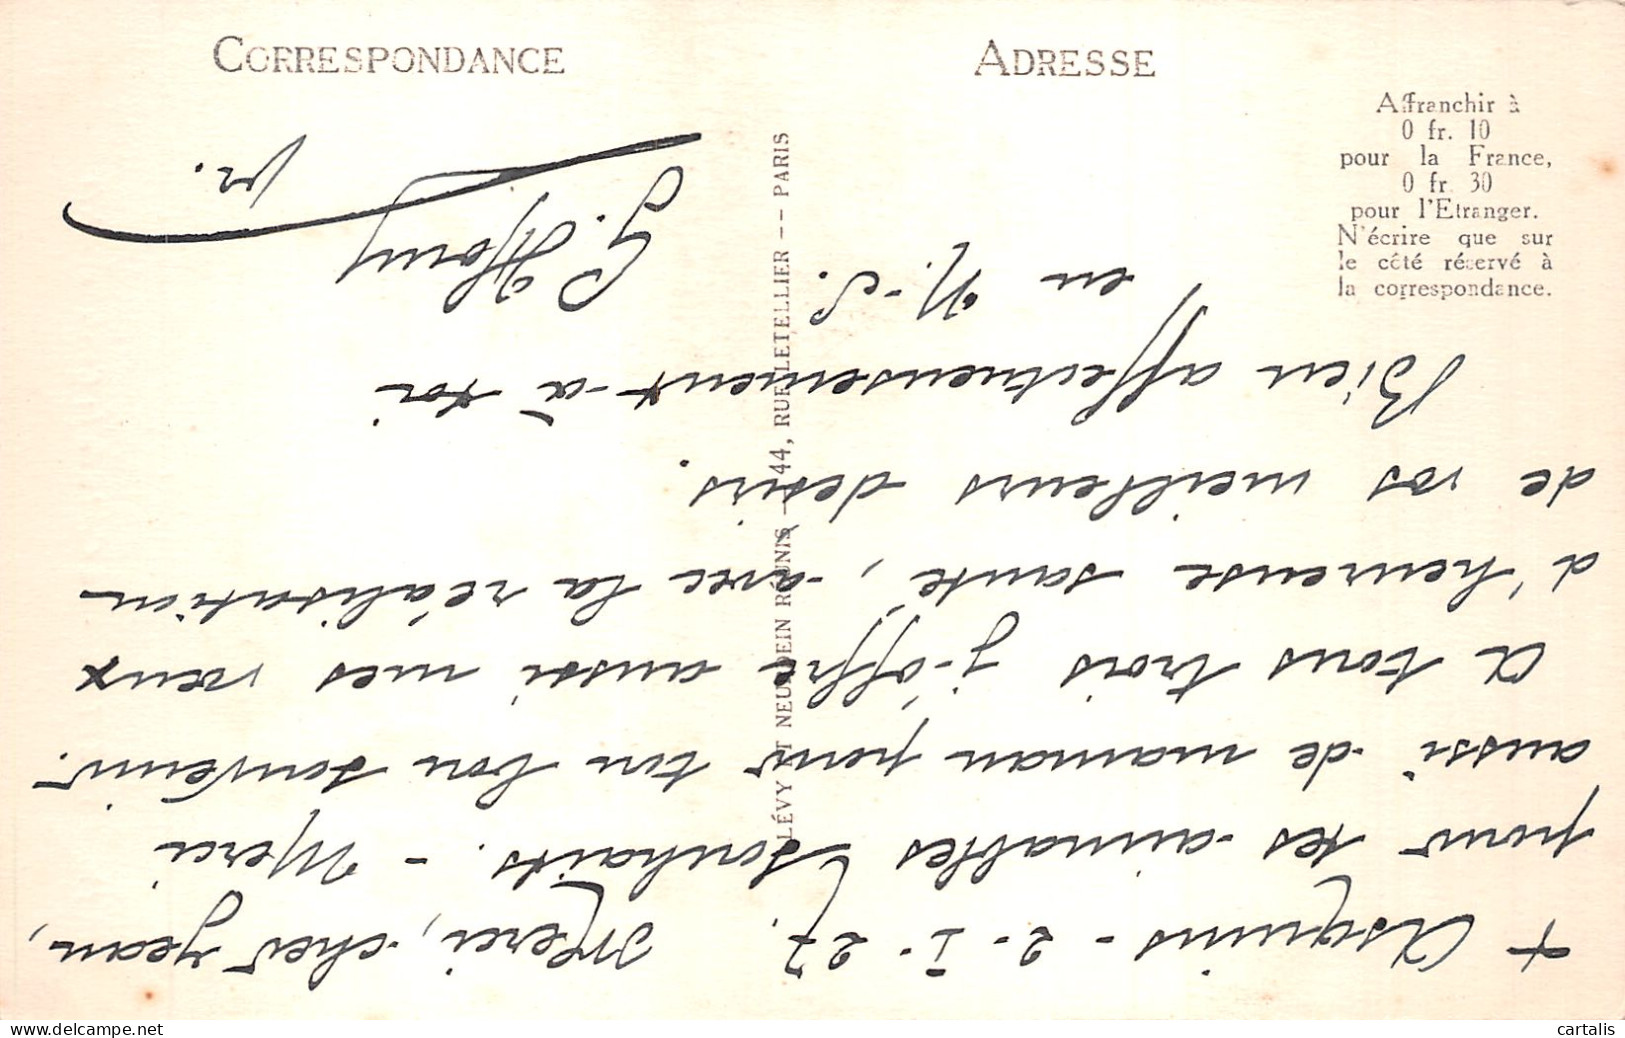 CORRESPONDANCE
ADRESSE
Affranchir à
0 fr. 10
pour la France,
0 fr. 30
pour l'Etranger.
N'écrire que sur
le côté réservé à
la correspondance.
LÉVY ET NEURDEIN RÉUNIS - 44, RUE LETELLIER -- PARIS
+ Asquins - 2 - I - 27. Merci, cher Jean,
pour tes aimables souhaits. - Merci
aussi de maman pour ton bon souvenir.
A tous trois j'offre aussi mes vœux
d'heureuse santé, avec la réalisation
de vos meilleurs desirs.
Bien affectueusement à toi
en N.-S.
G.
cartalis
www.delcampe.net